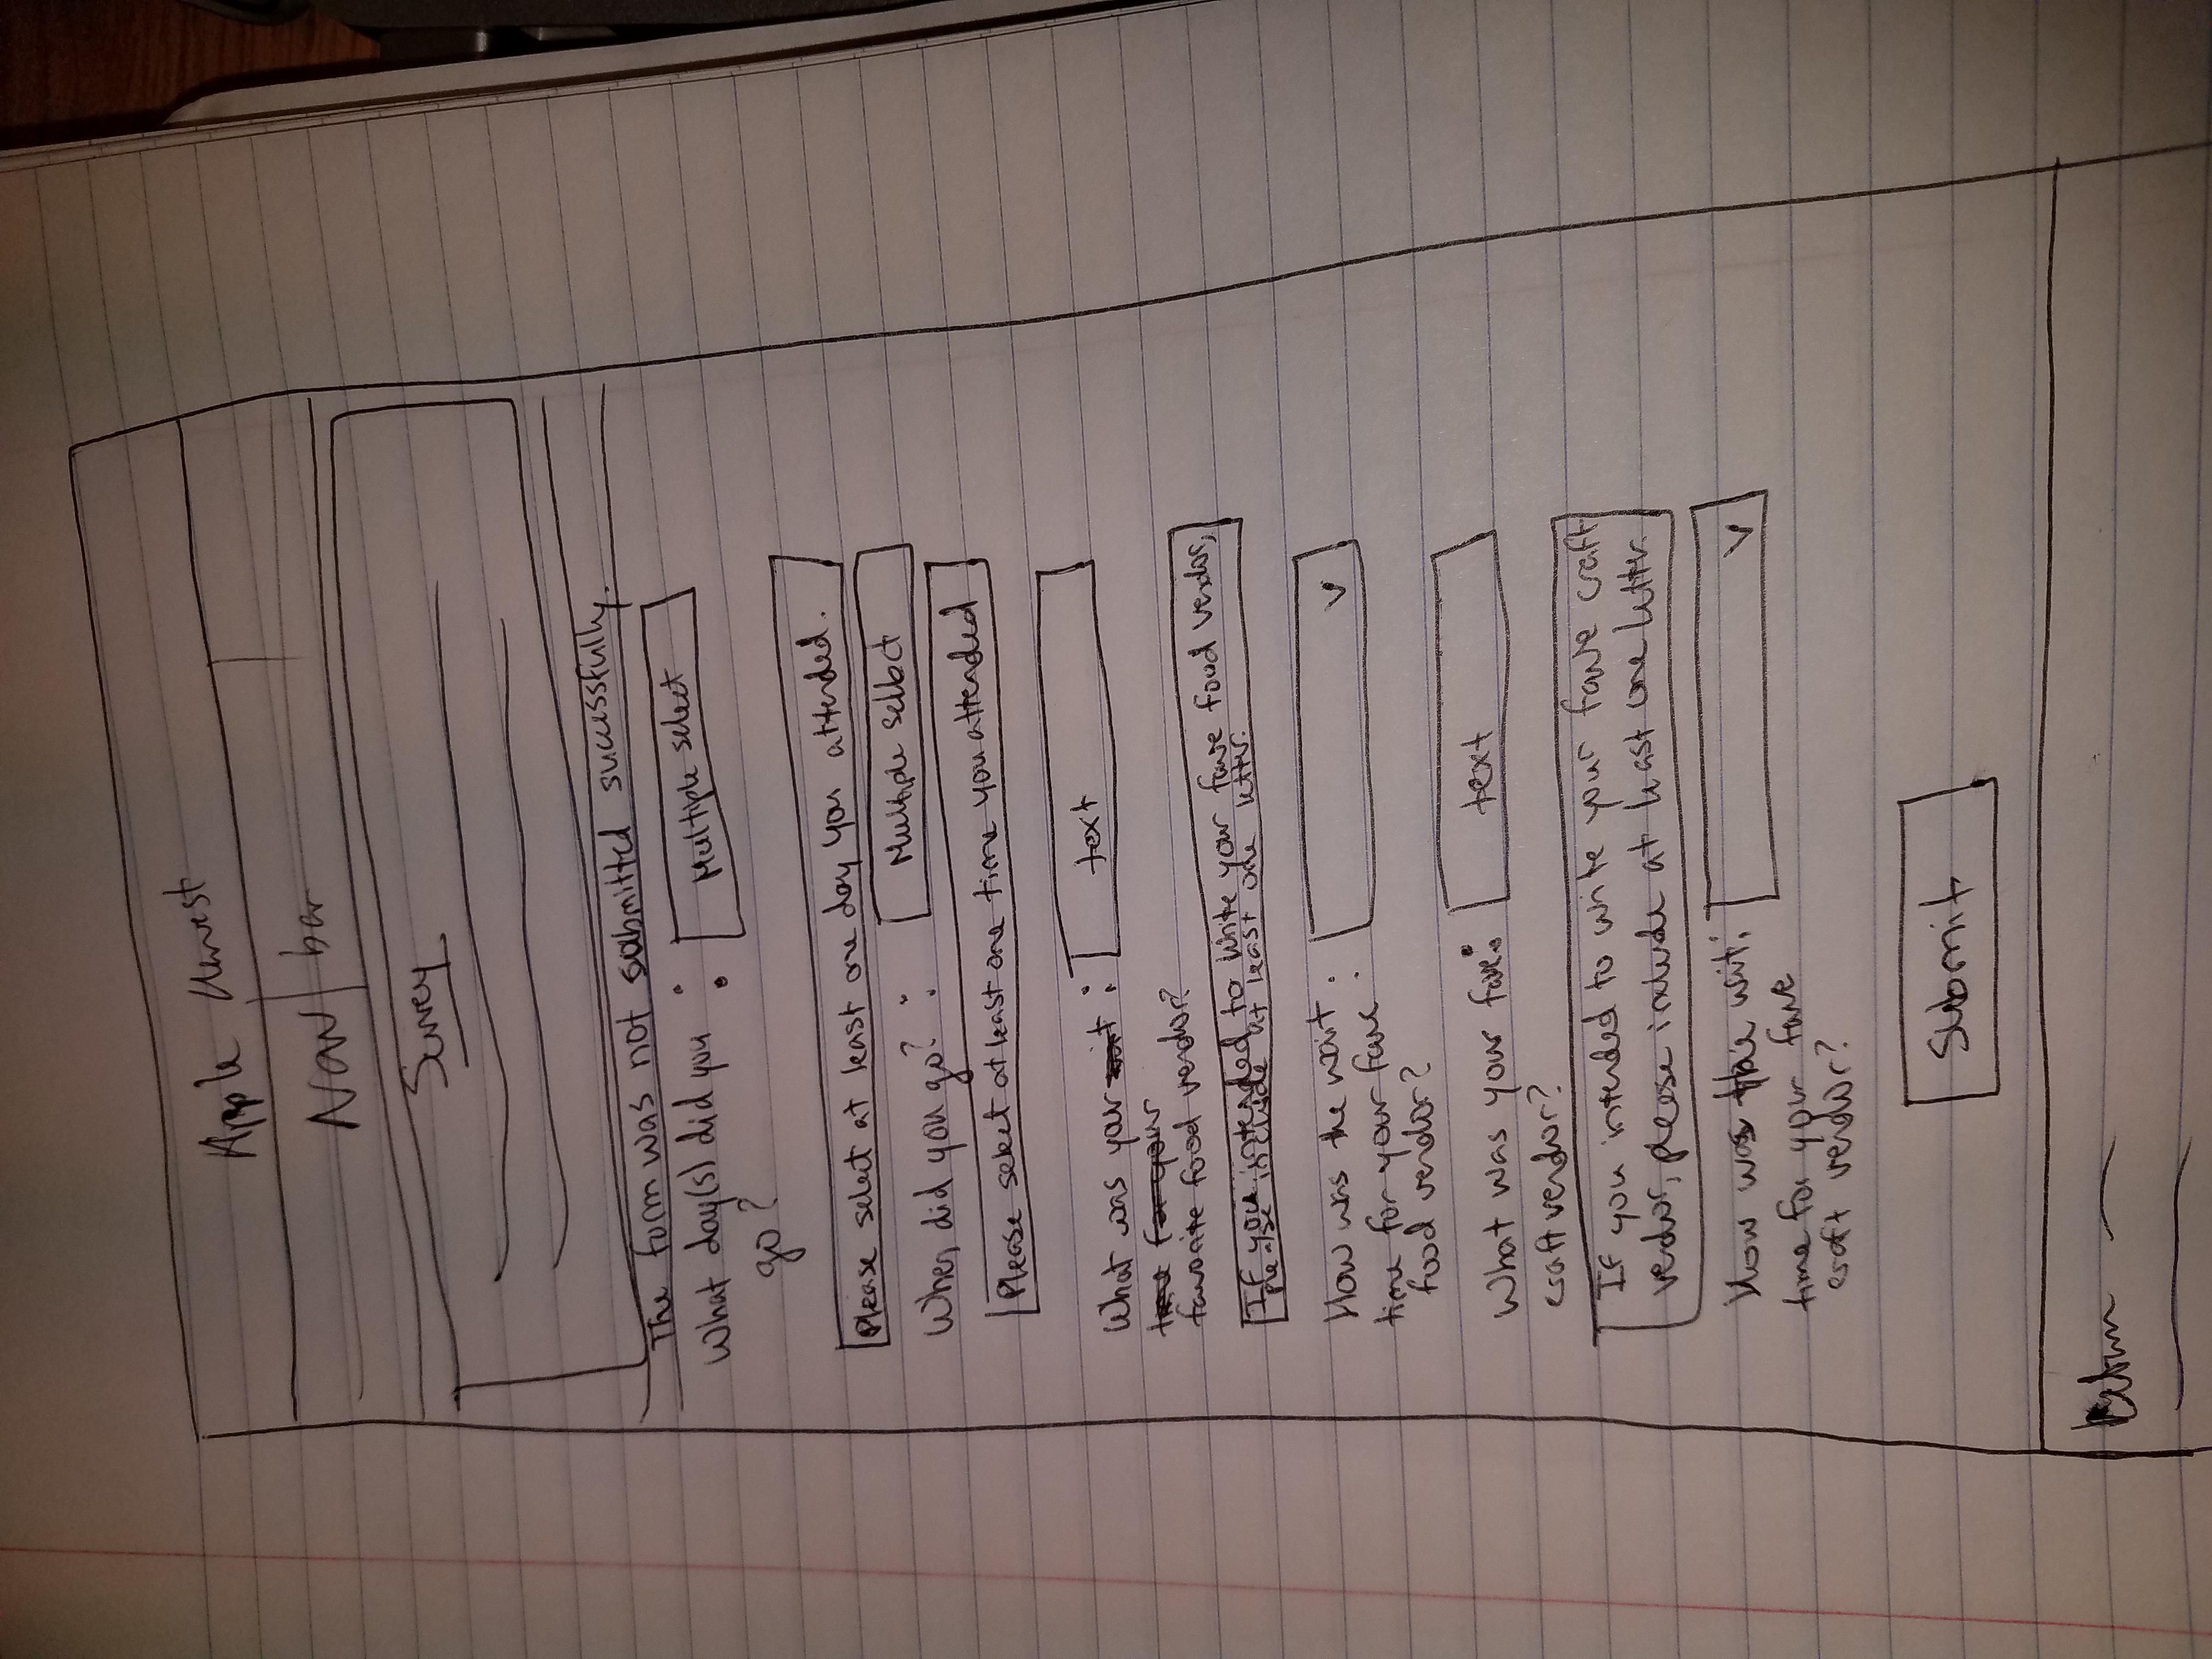 Apple Harvest
Nav bar
Survey
The form was not submitted successfully.
What day(s) did you : Multiple select
go?
Please select at least one day you attended.
When did you go? : Multiple select
Please select at least one time you attended
What was your wait : text
time for your
favorite food vendor?
If you intended to write your fave food vendor,
please include at least one letter.
How was the wait : v
time for your fave
food vendor?
What was your fave: text
craft vendor?
If you intended to write your fave craft
vendor, please include at least one letter.
How was the wait: v
time for your fave
craft vendor?
Submit